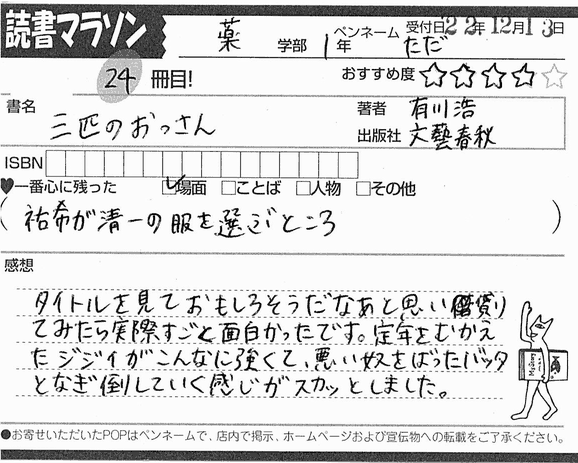 読書マラソン
薬 学部 1年 ペンネーム ただ 受付日22年12月13日
24 冊目! おすすめ度 ☆☆☆☆☆
書名 三匹のおっさん
著者 有川浩
出版社 文藝春秋
ISBN
♥一番心に残った ☑場面 □ことば □人物 □その他
(祐希が清一の服を選ぶところ)
感想
タイトルを見ておもしろそうだなあと思い借り
てみたら実際すごく面白かったです。定年をむかえ
たジジイがこんなに強くて、悪い奴をばったバッタ
となぎ倒していく感じがスカッとしました。
●お寄せいただいたPOPはペンネームで、店内で掲示、ホームページおよび宣伝物への転載をご了承ください。